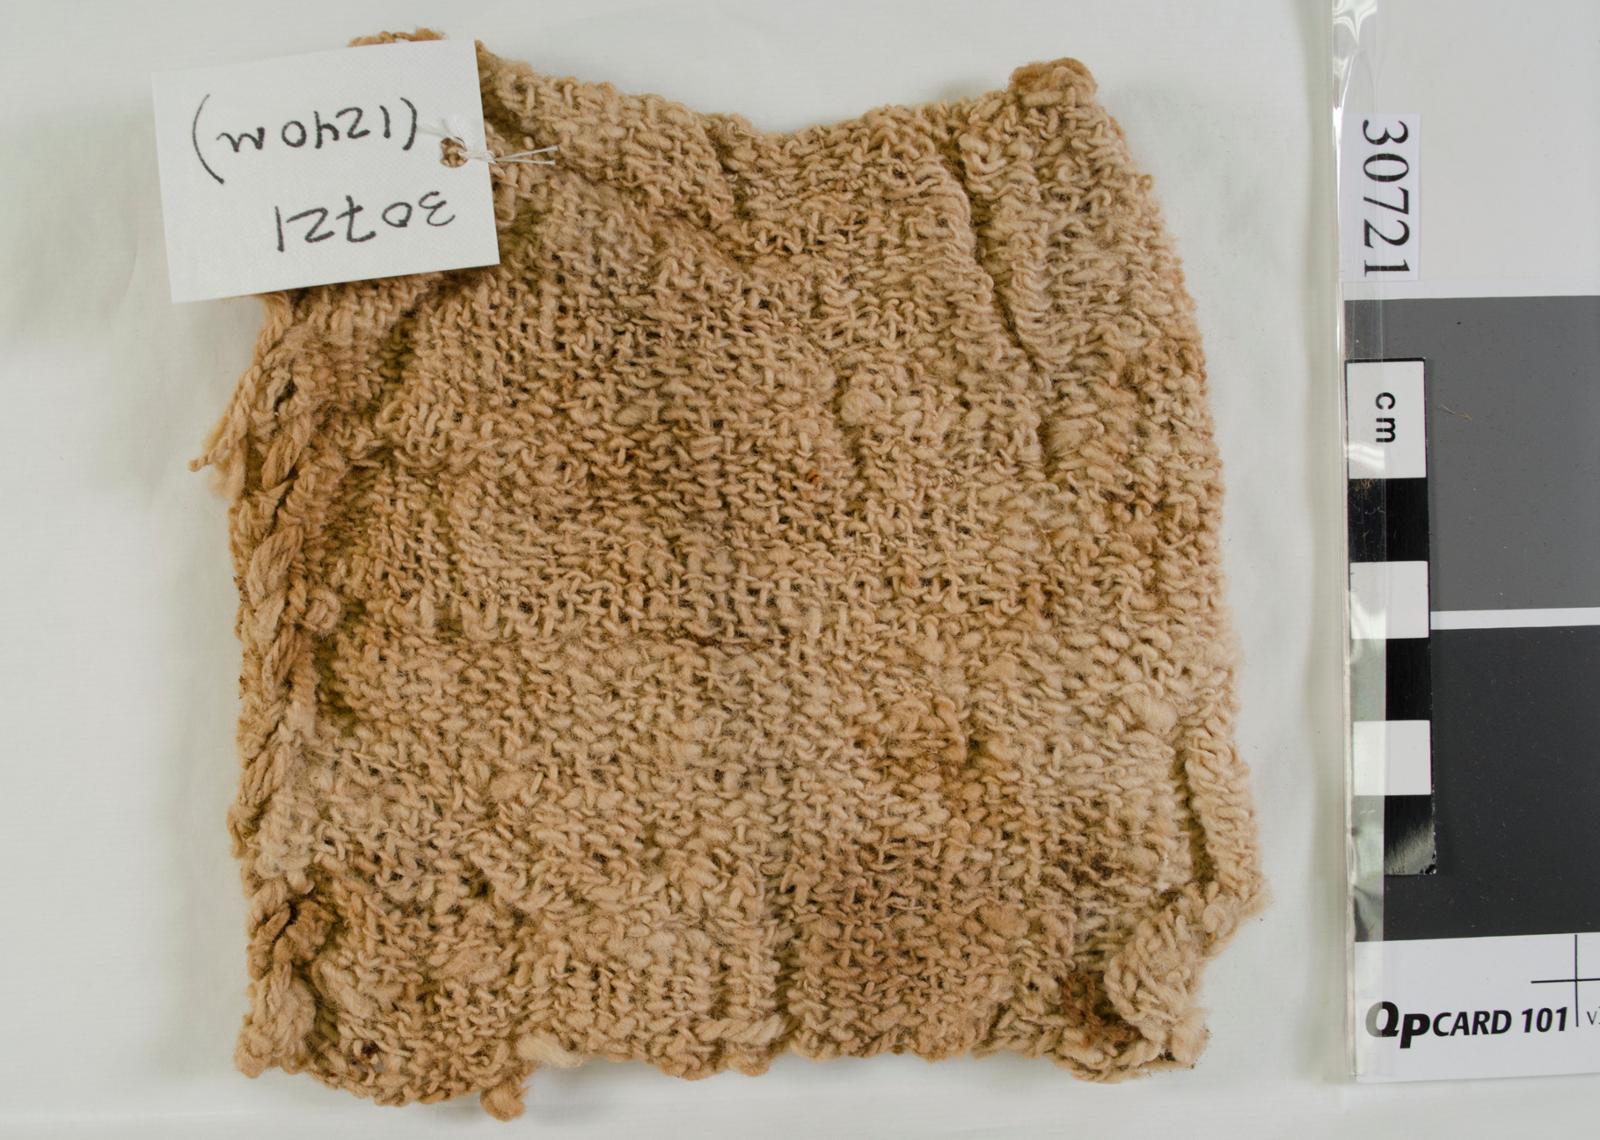 30721
(1240m)
30721
cm
QPCARD 101